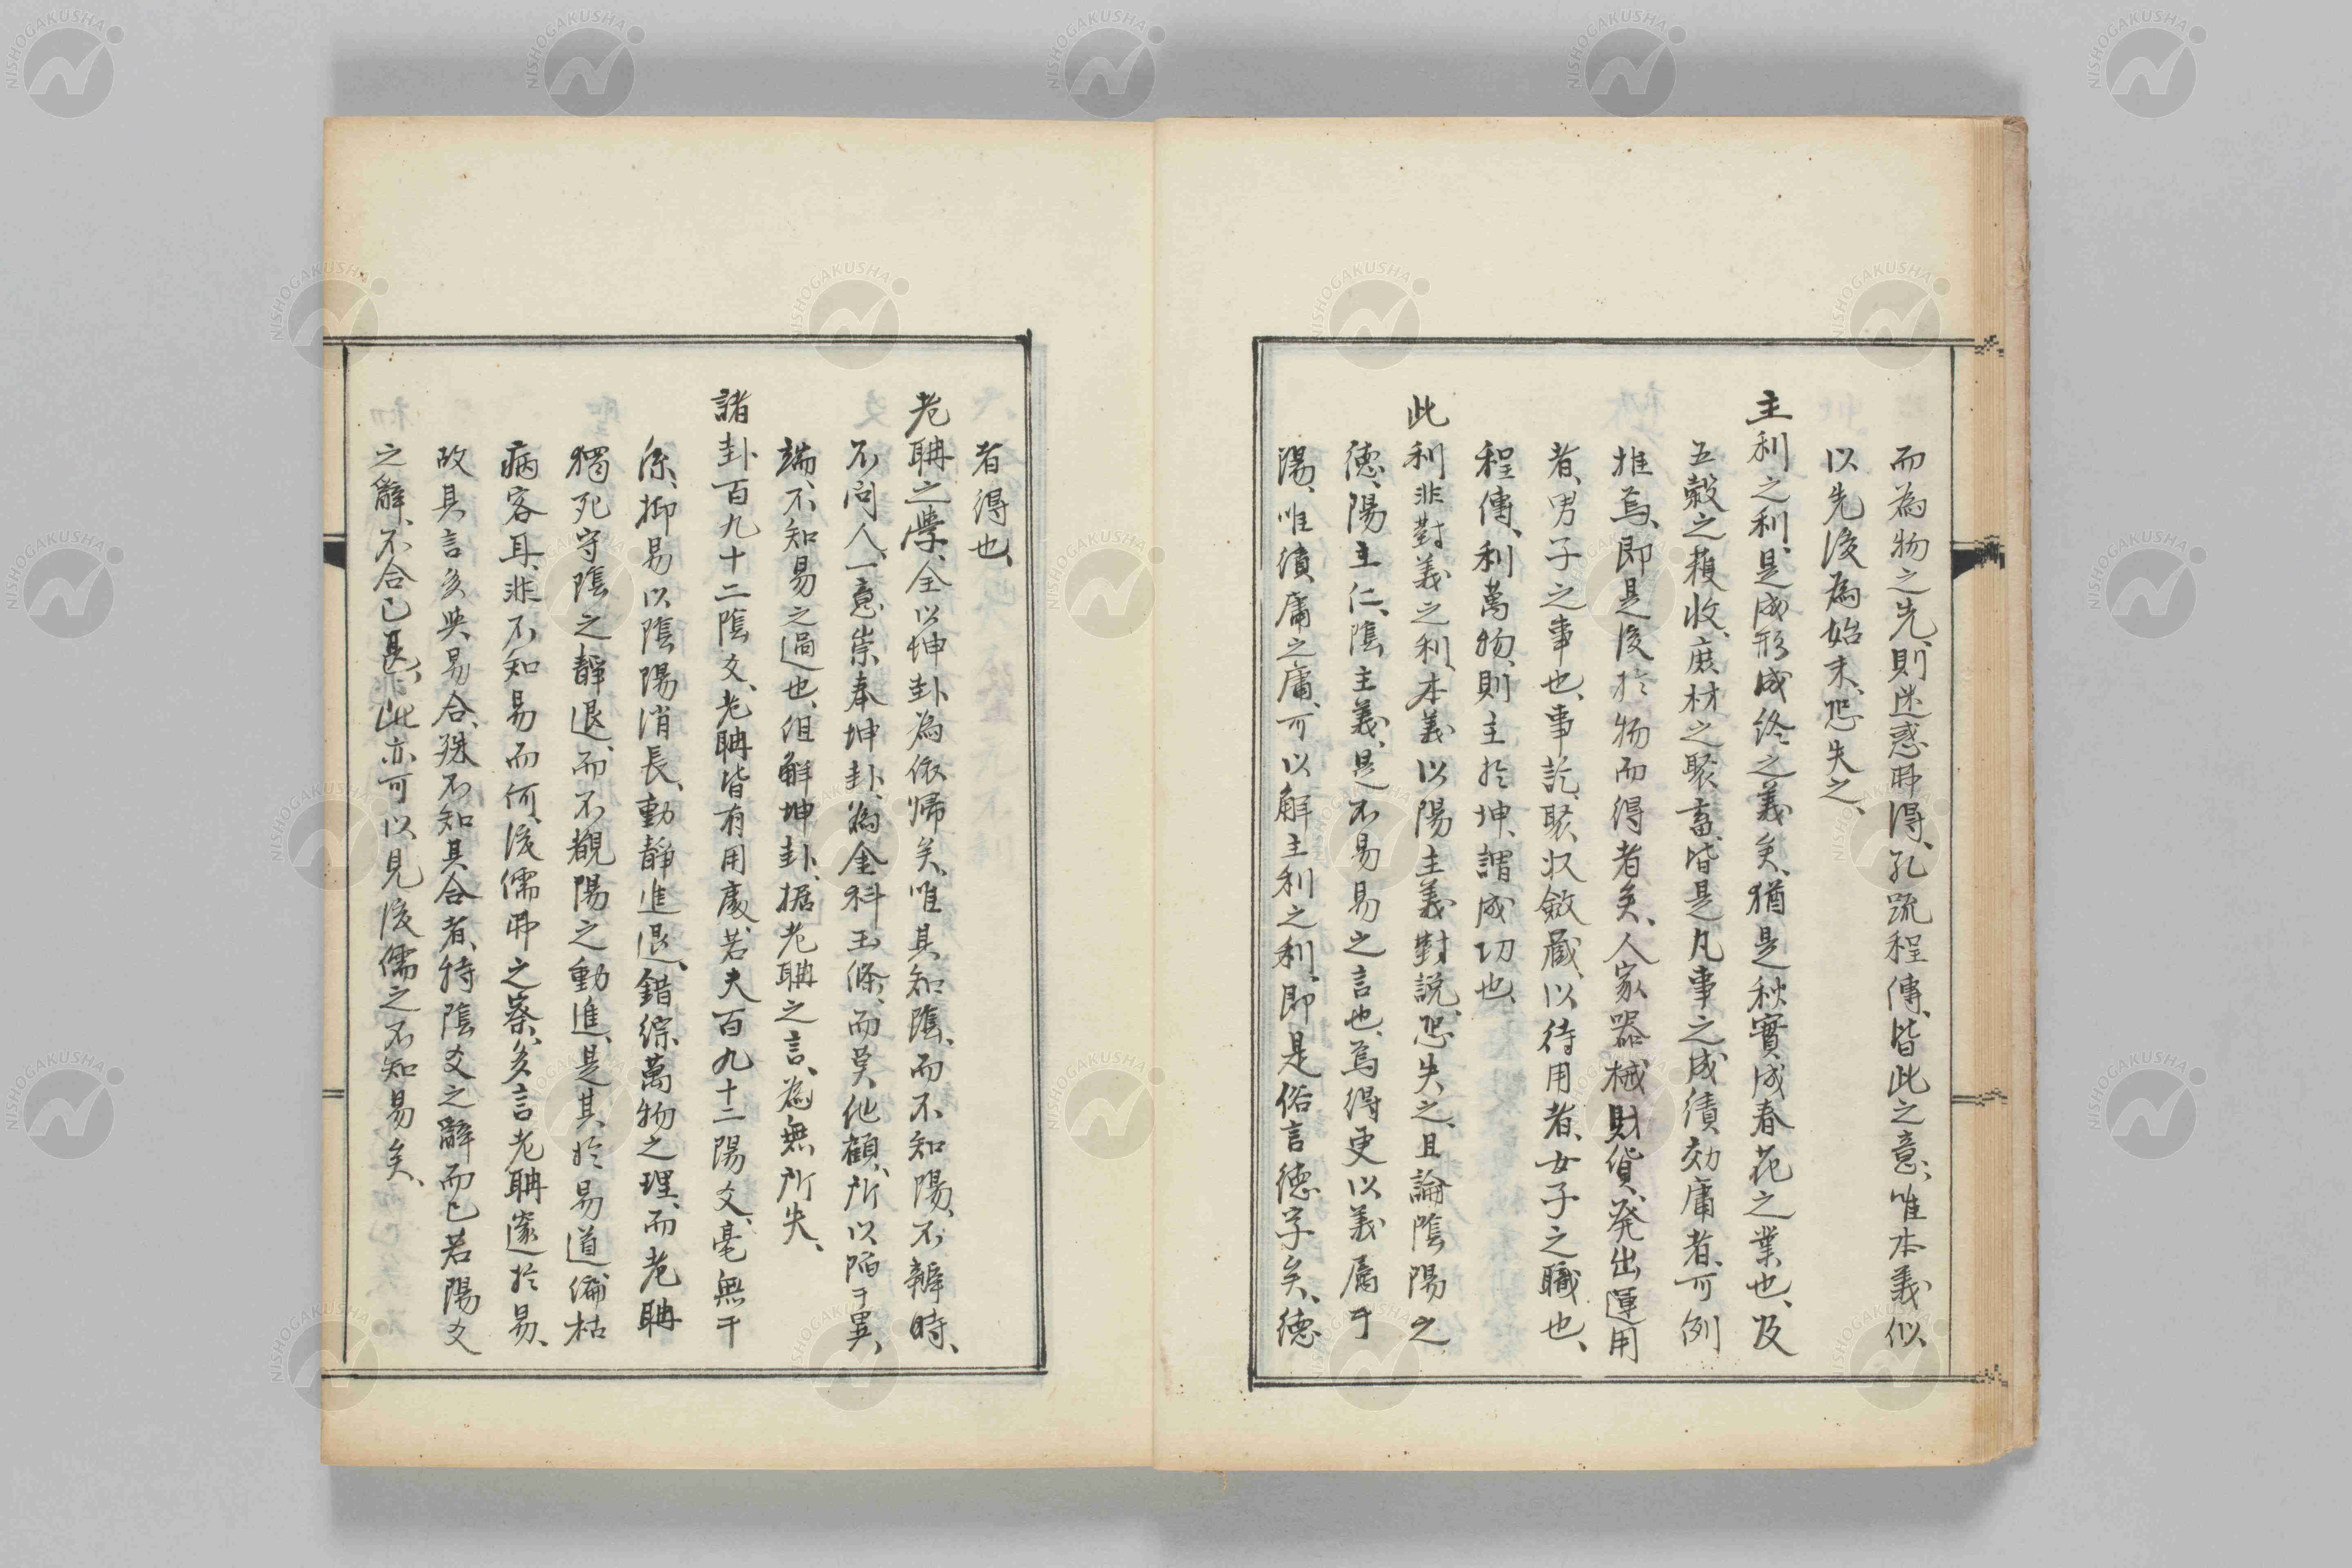 而為物之先、則迷惑所得、孔疏程傳、皆此之意、唯本義似
以先後為始末、恐失之、
主利之利、是成形成終之義矣、猶是秋實、成春花之業也、及
五穀之穫收、庶材之聚畜、皆是凡事之成績効庸者、可例
推焉、即是後於物而得者矣、人家器械財貨、発出運用
者、男子之事也、事訖、聚収斂蔵、以待用者、女子之職也、
程傳、利萬物、則主於坤、謂成功也、
此利非對義之利、本義以陽主義對説、恐失之、且論陰陽之
徳、陽主仁、陰主義、是不易易之言也、焉得更以義属于
陽、唯績庸之庸、可以解主利之利、即是俗言徳字矣、徳
者得也、
老聃之學、全以坤卦為依帰矣、唯其知陰、而不知陽、不辨時、
不問人、一意崇奉坤卦、為金科玉條、而莫他顧、所以陥于異
端、不知易之過也、但解坤卦、据老聃之言、為無所失、
諸卦百九十二陰爻、老聃皆有用處、若夫百九十二陽爻、毫無干
係、抑易以陰陽消長、動靜進退、錯綜萬物之理、而老聃
獨死守陰之靜退、而不觀陽之動進、是其於易道偏枯
病客耳、非不知易而何、後儒弗之察、多言老聃邃於易、
故其言多與易合、殊不知其合者、特陰爻之辭而已、若陽爻
之辭、不合已甚、此亦可以見後儒之不知易矣、
NISHOGAKUSHA